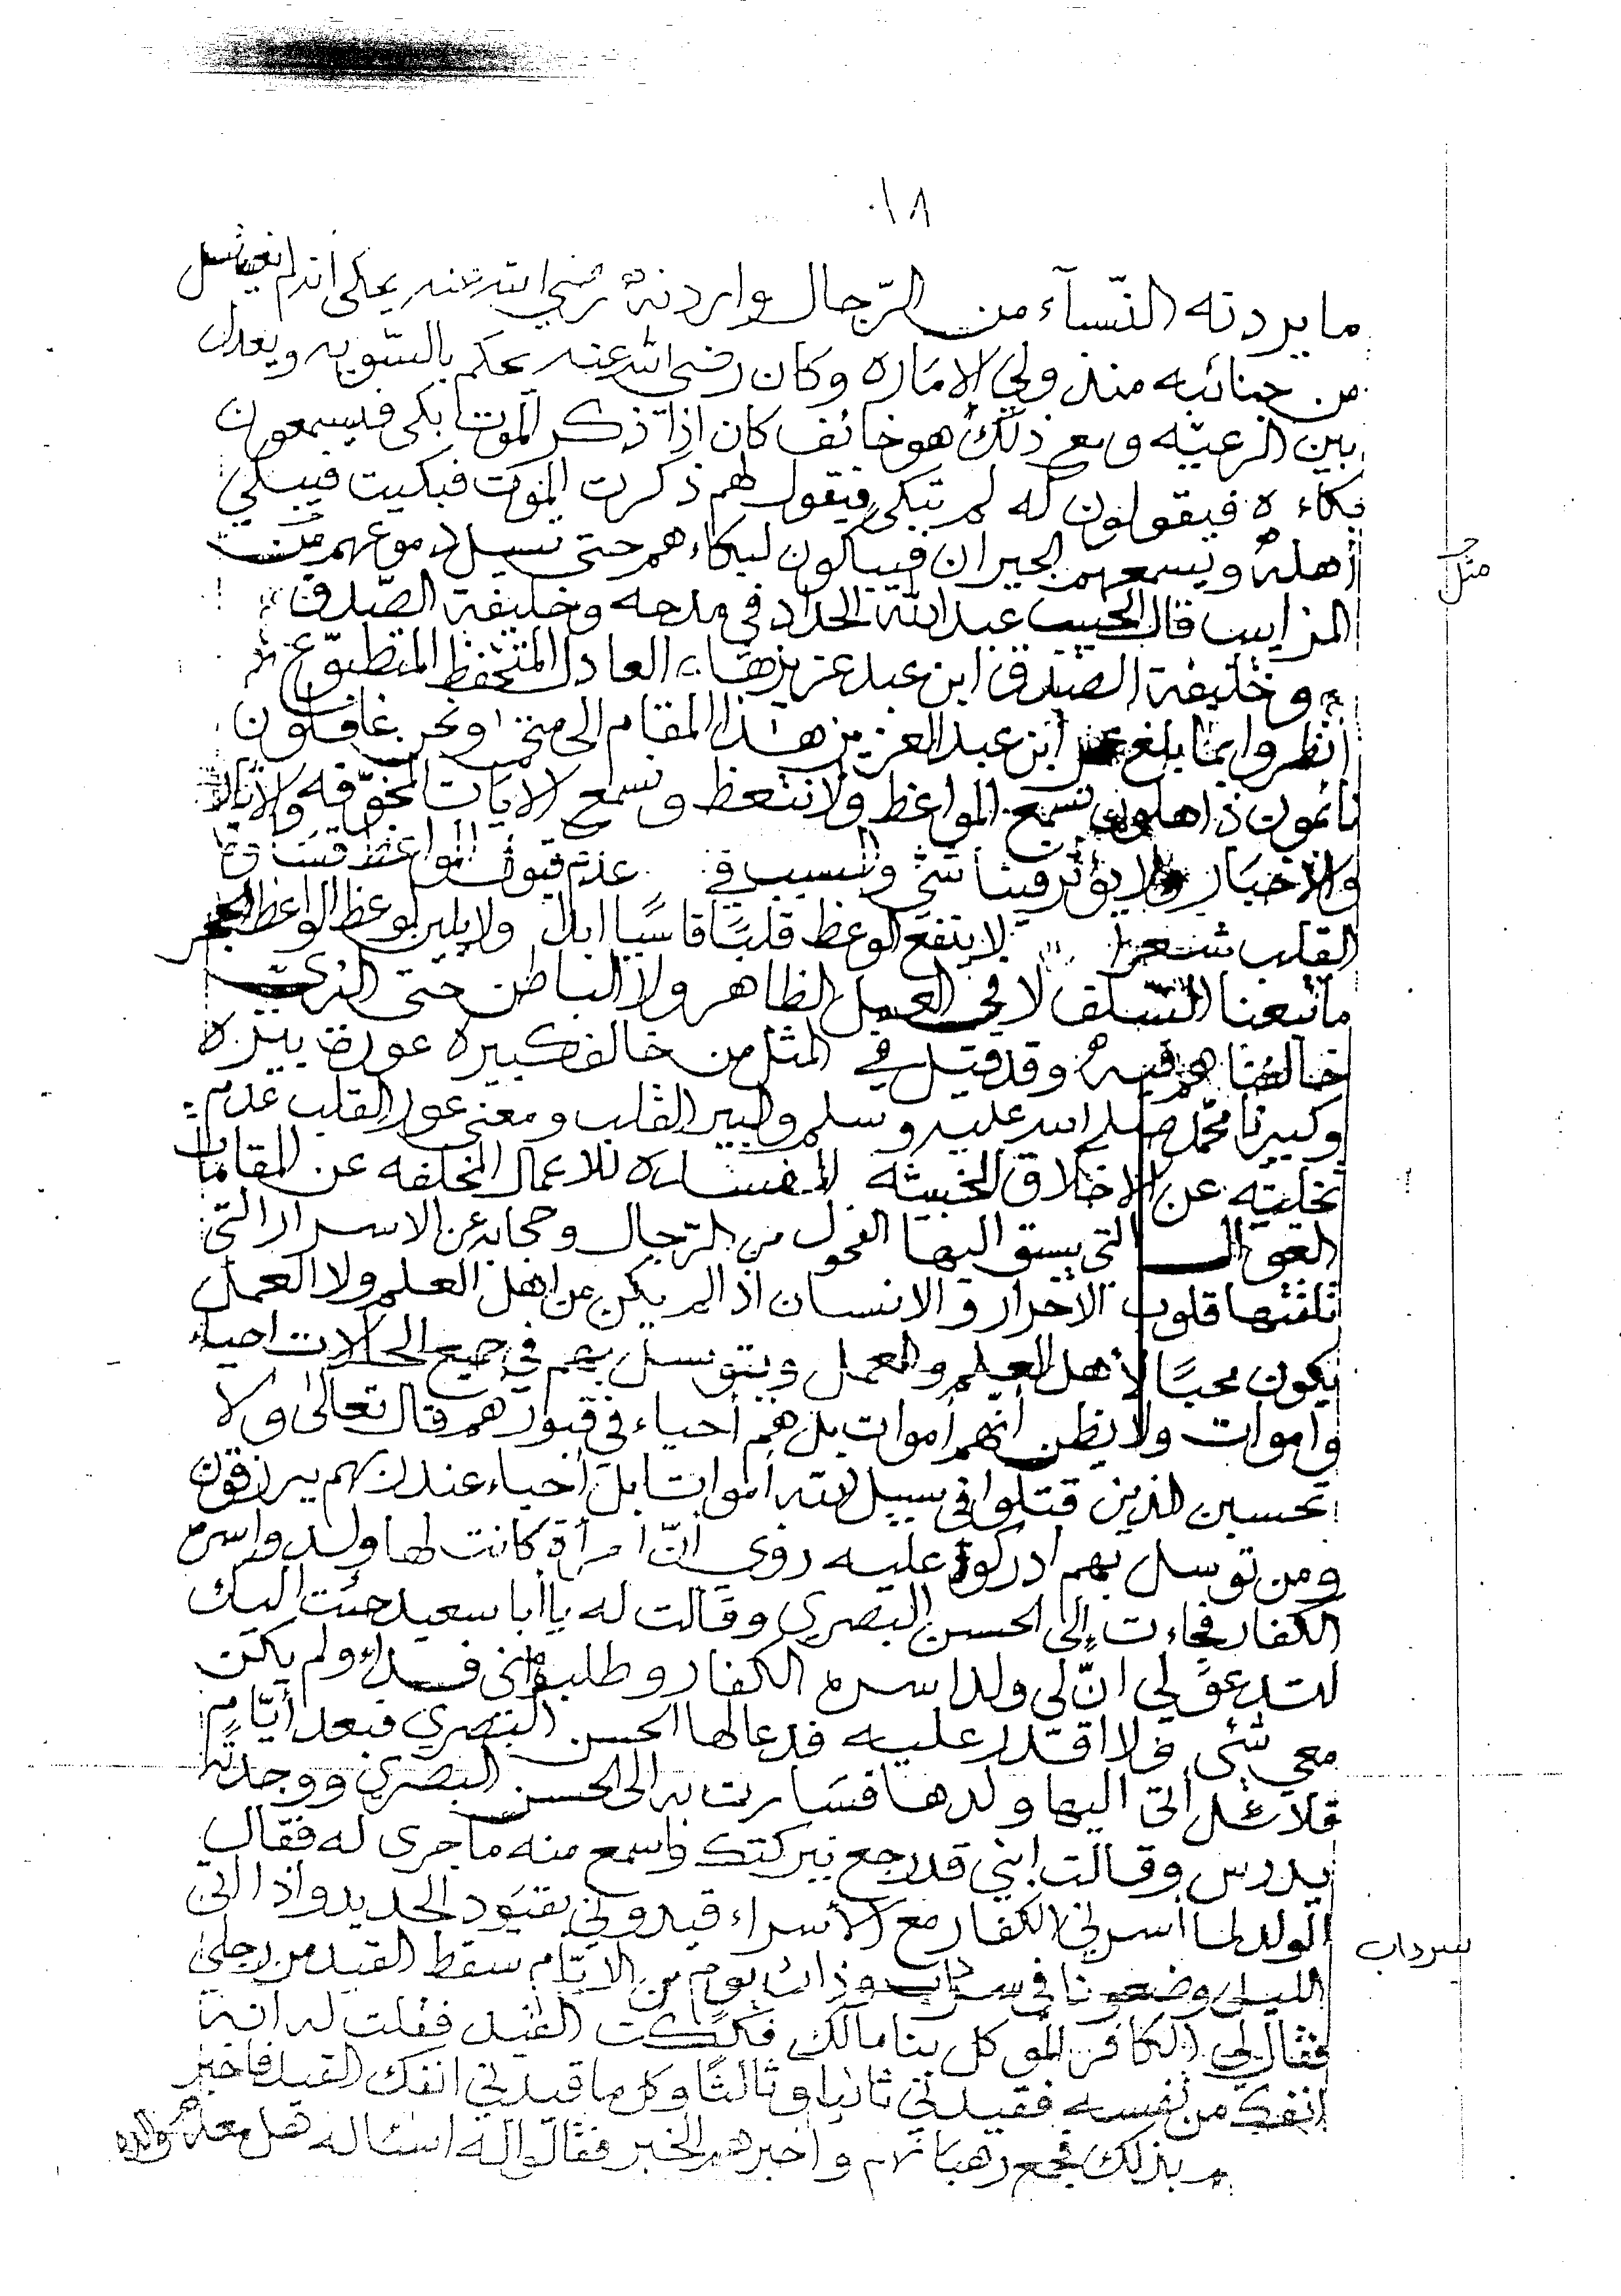 ١٨
ما يردنه النّسآء من الرّجال واردنهُ رضي الله عنه يحكى انه لم يغتسل
من جنائبه منذ ولي الامَاره وكان رضي الله عنه يحكم بالسّويه ويعدل
بين الرعيّه ومع ذلك هو خائف كان إذا ذكر الموت بكى فيسمعون
بكاءه فيقولون له لم تبكي فيقول لهم ذكرت الموت فبكيت فيبكي
أهلهُ ويسمعهم الجيران فيبكون لبكاءهم حتى تسيل دموعهم من
المزاييب قال الحبيب عبد الله الحداد في مدحه وخليفة الصّدق
وخليفة الصّدق ابن عبد عزيزها العادل المتحفظ المتطوّع
انظروا بما بلغ ابن عبد العزيز هذا المقام الى متى ونحن غافلون
نائمون ذاهلون نسمع المواعظ ولا نتعظ ونسمع الايات المخوّفه والاثار
والاخبار ولا يؤثر فينا شي والسبب في عدم قبول المواعظ
القلب شعرا لا ينفع الوعظ قلبًا قاسيًا ابدا ولا يلين لوعظ الواعظ الحجر
ما تبعنا السّلف لا في العمل الظاهر ولا الباطن حتى
خالفناهم فيه وقد قيل في المثل من خالف كبيره عورة بيره
وكبيرنا محمّد صلى الله عليه وسلم والبير القلب ومعنى عور القلب عدم
تخليته عن الاخلاق الخبيثه المفسده للاعمال المخلفه عن المقامات
العوال التي يسبق اليها الفحول من الرّجال وحجابه عن الاسرار التي
تلقّتها قلوب الاحرار والانسان اذا لم يكن من اهل العلم ولا العمل
يكون محبًا لأهل العلم والعمل ويتوسل بهم في جميع الحالات احياء
وأموات ولا يظن أنهم أموات بل هم أحياء في قبورهم قال تعالى ولا
تحسبن الذين قتلوا في سبيل الله أمواتا بل أحياء عند ربهم يرزقون
ومن توسل بهم ادركوا عليه روي أنّ امرأة كانت لها ولد واسره
الكفار فجاءت إلى الحسن البصري وقالت له يا أبا سعيد جئت اليك
لتدعو لي انّ لي ولدا اسره الكفار وطلبوا منى فداء ولم يكن
معي شئى فلا اقتدر عليه فدعا لها الحسن البصري فبعد أيّام
قلائل أتى اليها ولدها فسَارت به الى الحسن البصري ووجدته
يدرس وقالت ابني قد رجع ببركتك واسمع منه ما جرى له فقال
الولد لما أسرني الكفار مع الأسراء قيدوني بقيود الحديد واذا اتى
الليل وضعونا في سرداب وذات يوم من الايّام سقط القيد من رجلي
فقال لي الكافر الموكل بنا مالك فككت القيد فقلت له انه
انفك من نفسه فقيدني ثانيا وثالثًا وكل ما قيدني انفك القيد فاخبر
هم بذلك فجمع رهبانهم واخبرهم الخبر فقالوا له اسئاله هل معه والده
مثل
سرداب